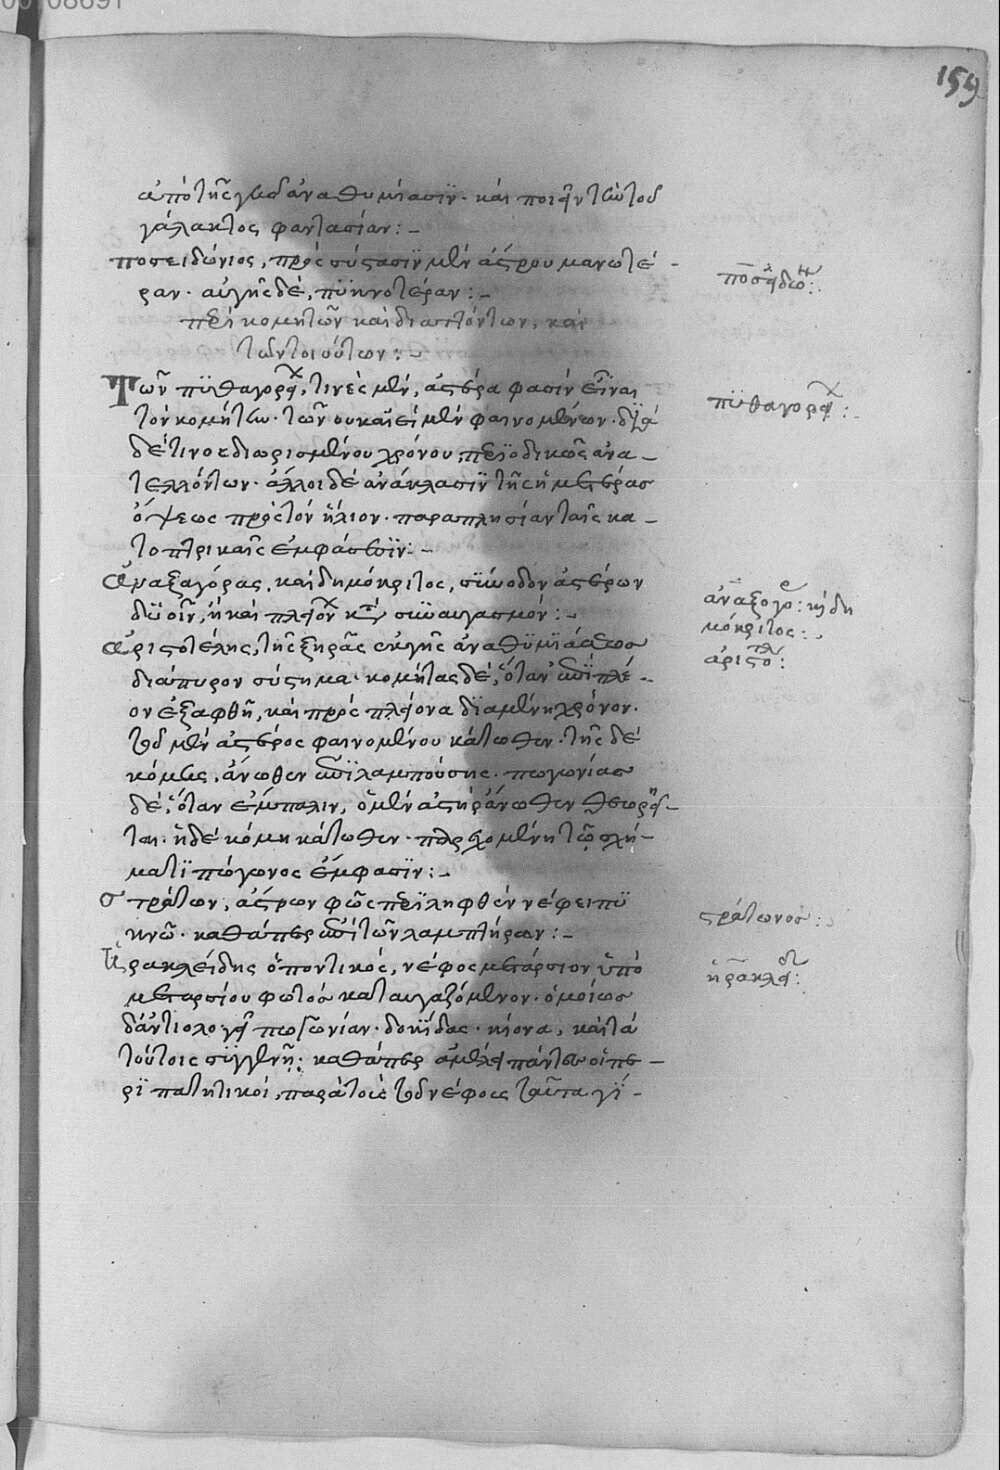 00108691
159
ἀπὸ τῆς γῆς ἀναθυμίασϊν· καὶ ποιεῖν τὴν τοῦ
γάλακτος φαντασίαν:-
ποσειδώνιος, πρὸς σύστασϊν μὲν ἄστρου μανωτέ-
ραν· αὐγῆς δὲ, πϋκνοτέραν:-
ποσειδω:.
περὶ κομητῶν καὶ διαττόντων, καὶ
τῶν τοιούτων:-
Τῶν πϋθαγορεί, τινὲς μὲν, ἀστέρα φασὶν εἶναι
τὸν κομήτην· τῶν οὐκ ἀεὶ μὲν φαινομένων· διὰ
πϋθαγορεί:-
δέ τινος διωρισμένου χρόνου, περϊοδικῶς ἀνα-
τελλόντων· ἄλλοι δὲ ἀνάκλασϊν τῆς ἡμετέρας
ὄψεως πρὸς τὸν ἥλιον· παραπλησίαν ταῖς κα-
τοπτρικαῖς ἐμφάσεσϊν:-
ἀναξαγόρας, καὶ δημόκριτος, σύνοδον ἀστέρων
δϋοῖν, ἢ καὶ πλειόν κατὰ συναυγασμόν:-
ἀναξαγο: κὴ δη
μόκριτος:.
ἀριστοτέλης, τῆς ξηρᾶς ἐκ γῆς ἀναθϋμϊάσεως
διάπυρον σύστημα· κομήτας δὲ, ὅταν ἐπϊπλέ-
ἀριστο:
ον ἐξαφθῆ, καὶ πρὸς πλείονα διαμένη χρόνον·
τοῦ μὲν ἀστέρος φαινομένου κάτωθεν· τῆς δὲ
κόμης, ἄνωθεν ἐπϊλαμπούσης· πωγωνίας
δὲ, ὅταν ἔμπαλιν, ὁ μὲν ἀστὴρ ἄνωθεν θεωρεῖ-
ται· ἡ δὲ κόμη κάτωθεν· παρεχομένη τῷ σχή-
ματϊ πώγωνος ἔμφασϊν:-
στράτων, ἄστρων φῶς περϊληφθὲν νέφει πϋ
κνῷ· καθάπερ ἐπὶ τῶν λαμπτήρων:-
στράτωνος:.
ἡρακλείδης ὁ ποντικὸς, νέφος μετάρσιον ὑπὸ
μεταρσίου φωτὸς καταυγαζόμενον· ὁμοίως
ἡρακλεί:
δ' αἰτιολογεῖ πωγωνίαν· δοκίδας· κίονα, καὶ τὰ
τούτοις σϋγγενῆ: καθάπερ ἀμέλει πάντες οἱ πε-
ρϊπατητικοὶ, παρὰ τοὺς τοῦ νέφους ταῦτα γί-